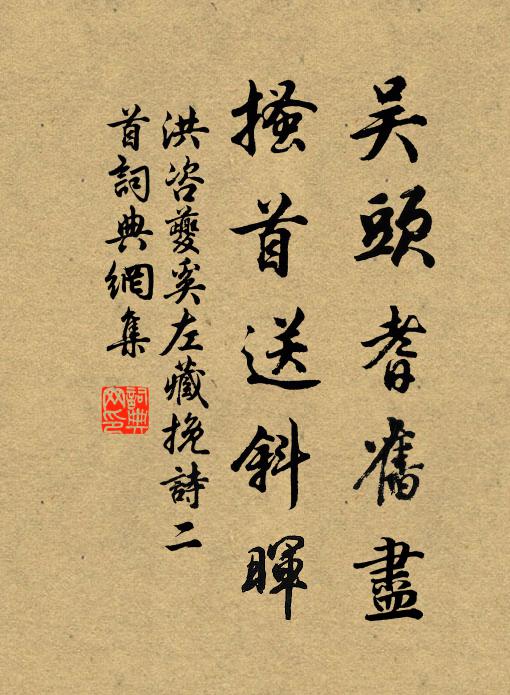 吴頭耆舊盡
搔首送斜暉
洪咨夔奚左藏挽詩二
首詞典網集
詞典网印